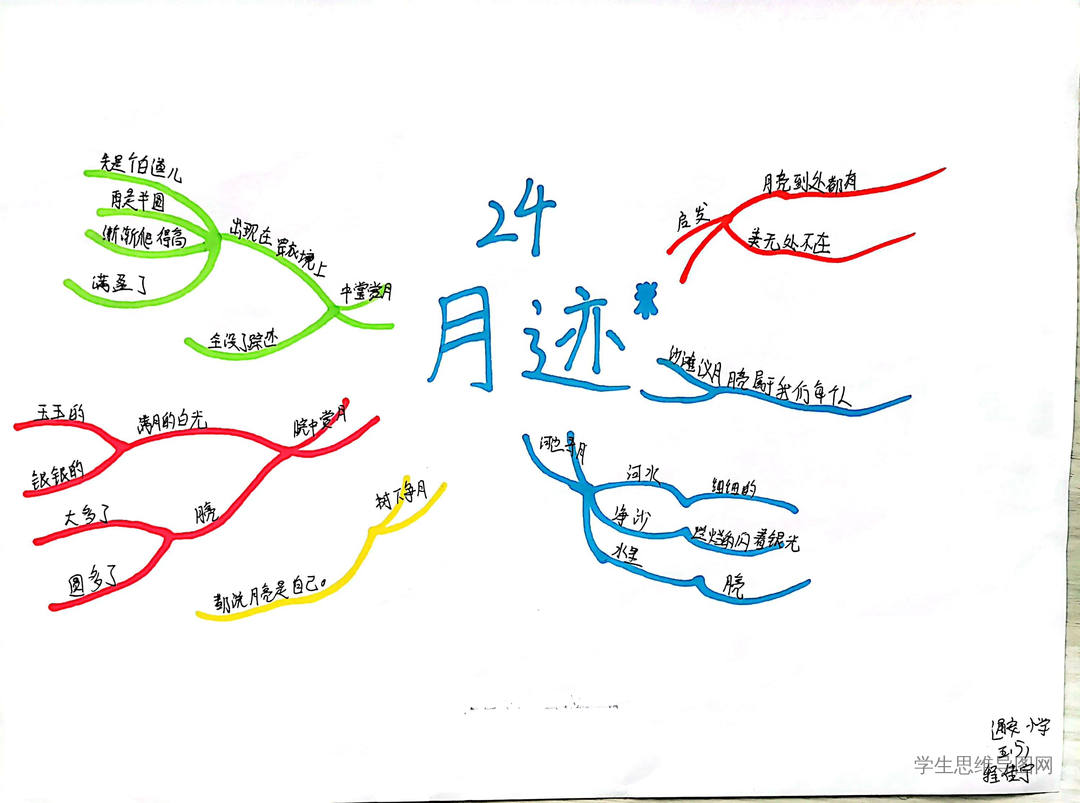 24
月迹*
中堂赏月
出现在穿衣境上
先是个白道儿
再是半圆
渐渐爬得高
满盈了
全没了踪迹
院中赏月
满月的白光
玉玉的
银银的
月亮
大多了
圆多了
树下争月
都说月亮是自己。
河边寻月
河水
细细的
净沙
灿烂的闪着银光
水里
月亮
沙滩议月
月亮属于我们每个人
启发
月亮到处都有
美无处不在
小学
五(5)
程佳宁
学生思维导图网